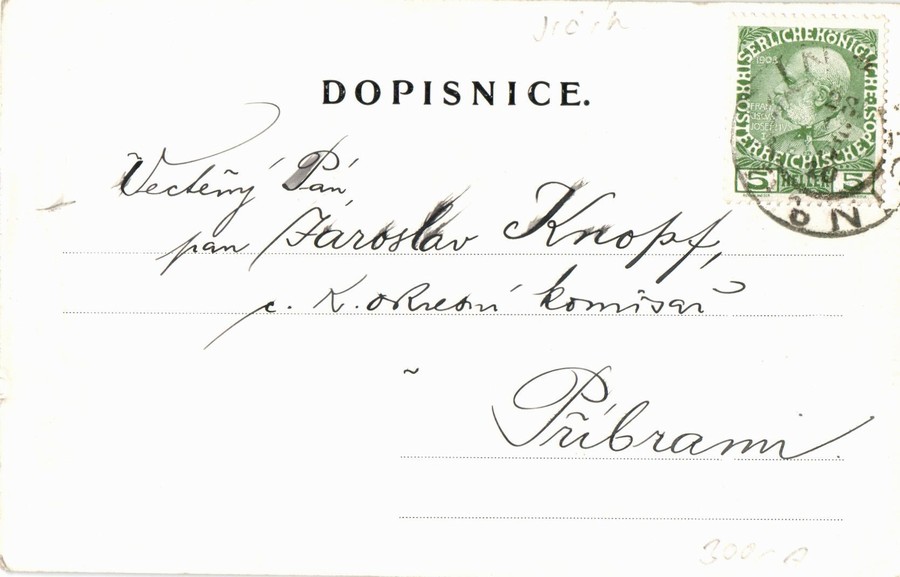 Jičín
DOPISNICE.
KAISERLICHE KÖNIGLICHE ÖSTERREICHISCHE POST
1908
FRANZ
JOSEF I
5 HELLER 5
Vectěný Pán
pan Jaroslav Knopf,
c. k. okresní komisař
v
Příbrami
300,-